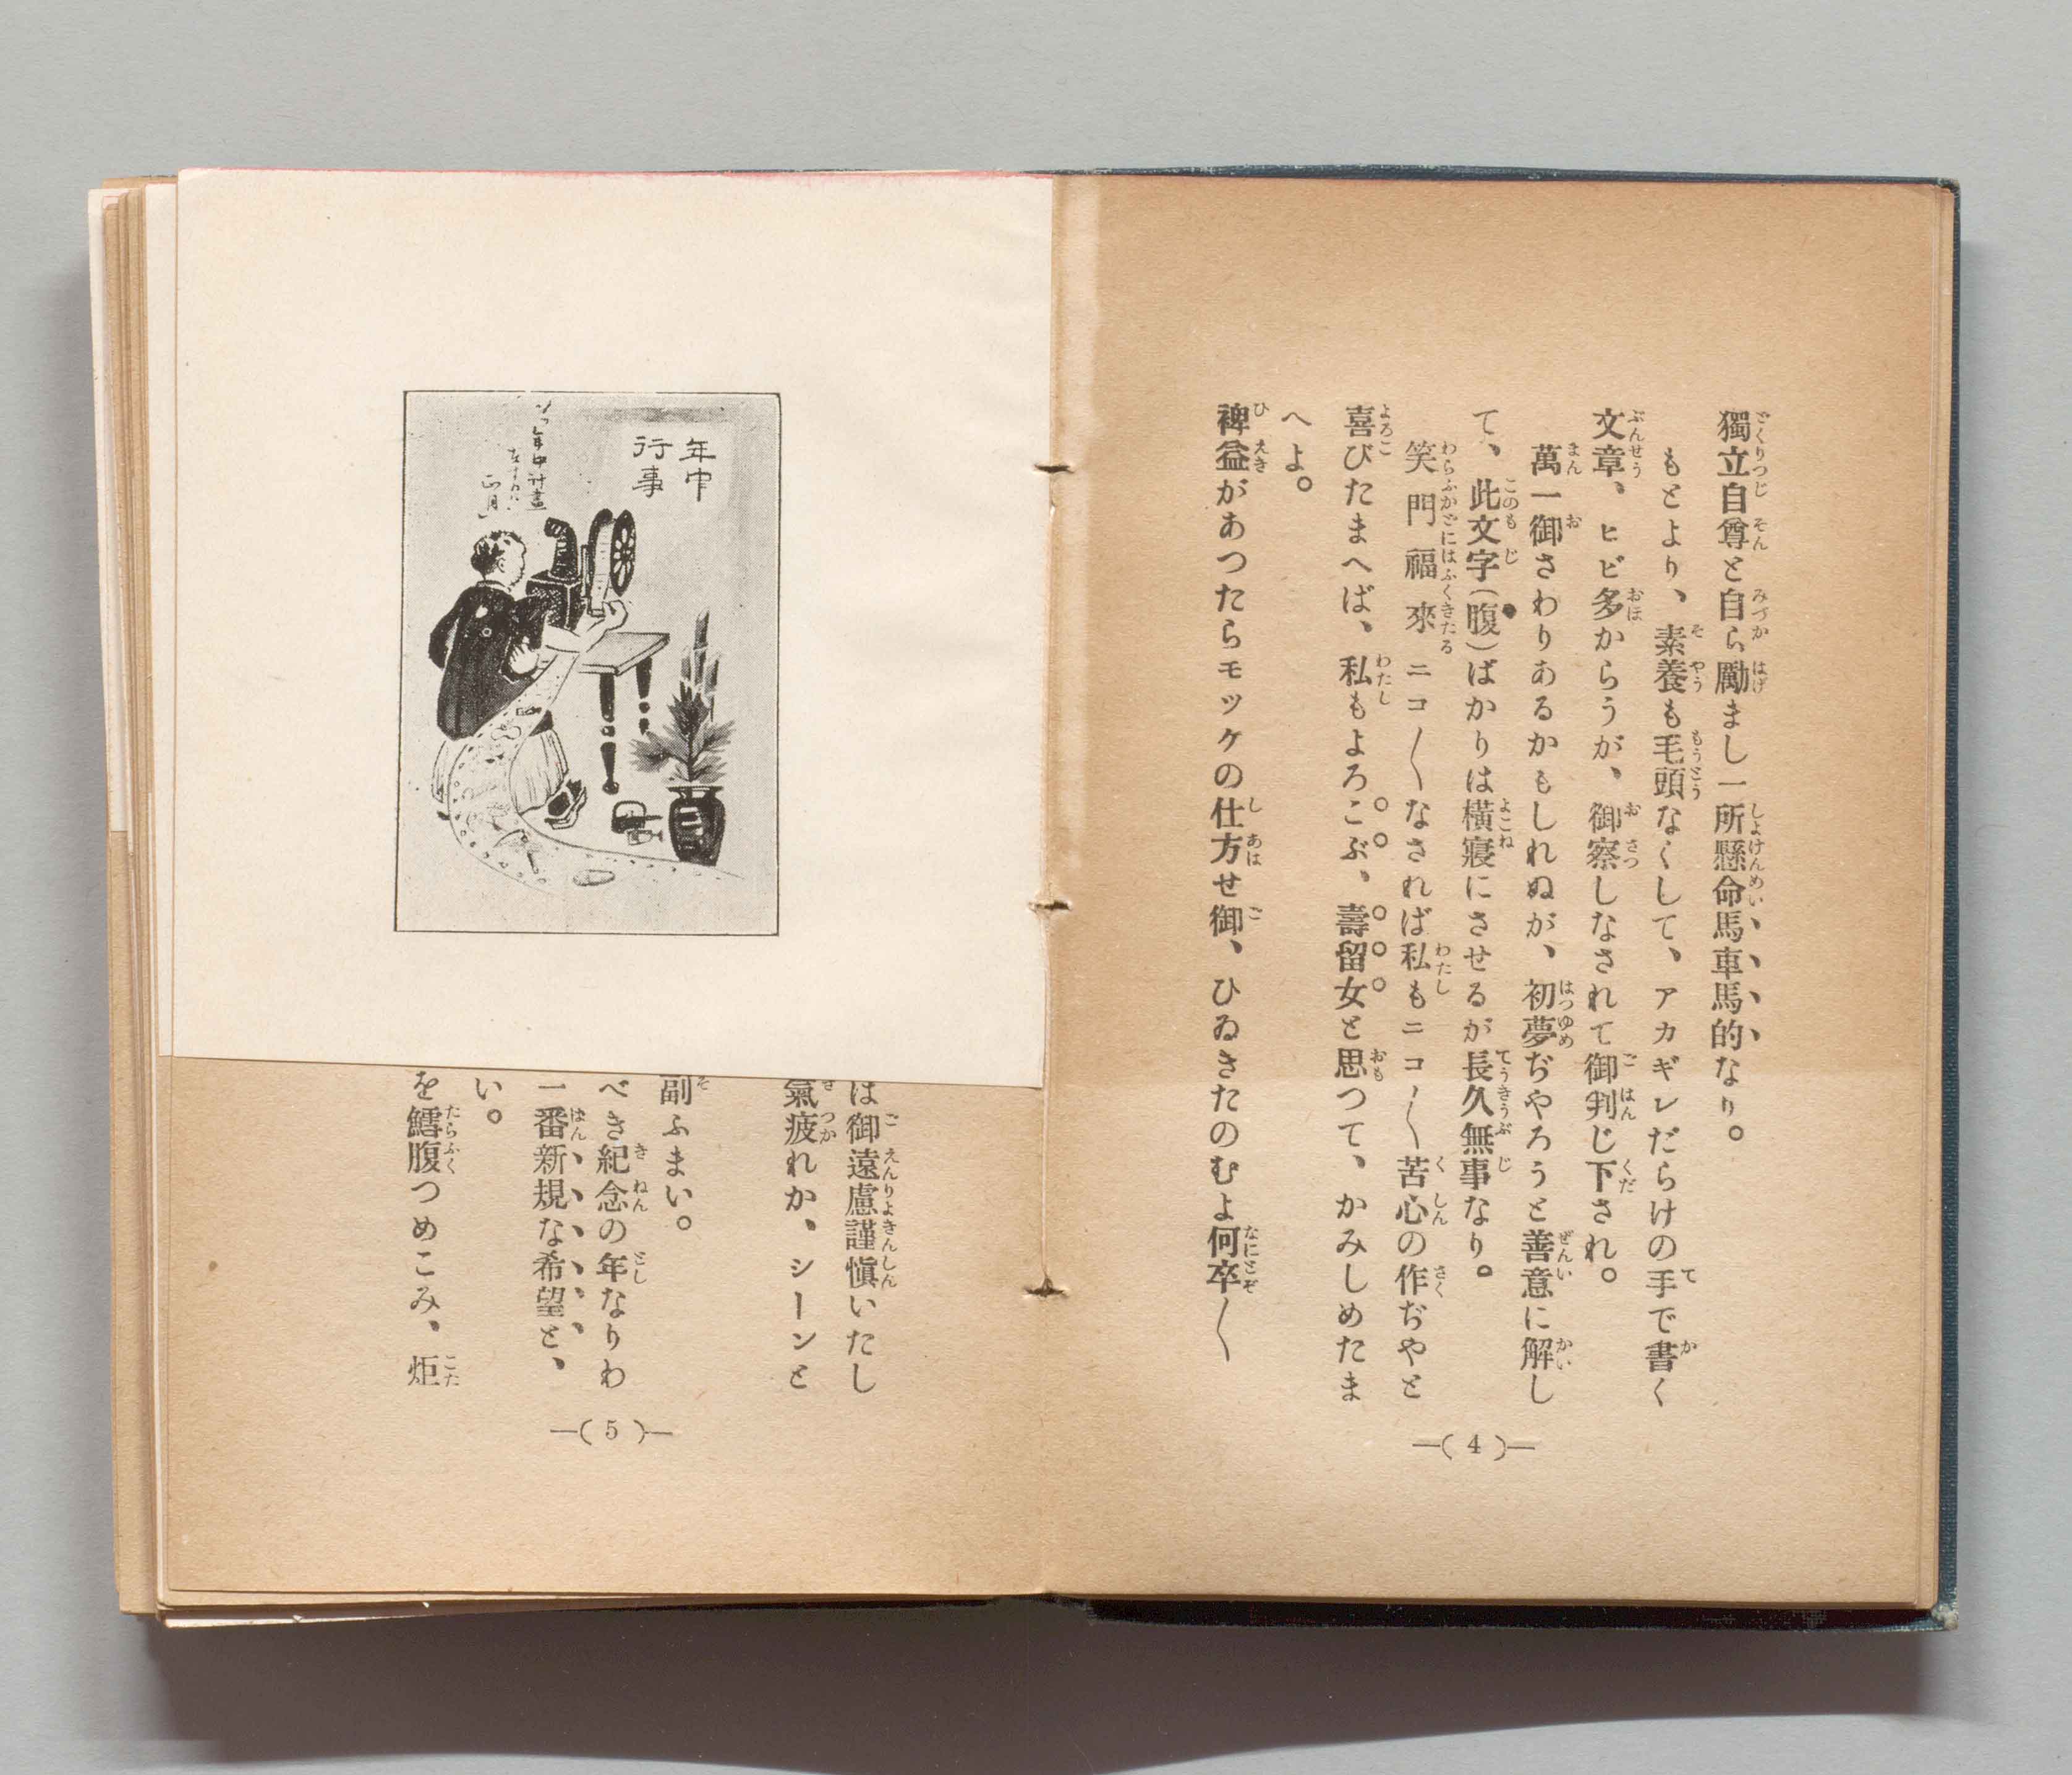 獨立自尊と自ら勵まし一所懸命馬車馬的なり。
もとより、素養も毛頭なくして、アカギレだらけの手で書く
文章、ヒビ多からうが、御察しなされて御判じ下され。
萬一御さわりあるかもしれぬが、初夢ぢやろうと善意に解し
て、此文字(腹)ばかりは横寢にさせるが長久無事なり。
笑門福來ニコ〳〵なされば私もニコ〳〵苦心の作ぢやと
喜びたまへば、私もよろこぶ、壽留女と思つて、かみしめたま
へよ。
裨益があつたらモツケの仕方せ御、ひゐきたのむよ何卒〳〵
—( 4 )—
年中
行事
年中計畫
正月
は御遠慮謹愼いたし
氣疲れか、シーンと
副ふまい。
べき紀念の年なりわ
一番新規な希望と、
い。
を鱈腹つめこみ、炬
—( 5 )—